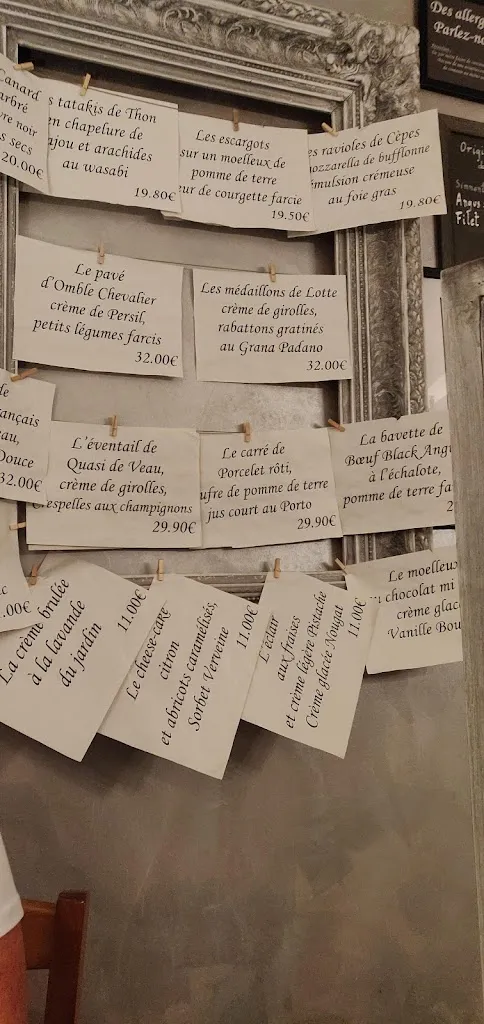 Canard
arbré
re noir
s secs
20.00€
s tatakis de Thon
en chapelure de
ajou et arachides
au wasabi
19.80€
Les escargots
sur un moelleux de
pomme de terre
ur de courgette farcie
19.50€
es ravioles de Cèpes
mozzarella de bufflonne
émulsion crémeuse
au foie gras
19.80€
Le pavé
d'Omble Chevalier
crème de Persil,
petits légumes farcis
32.00€
Les médaillons de Lotte
crème de girolles,
rabattons gratinés
au Grana Padano
32.00€
de
ançais
eau,
Douce
32.00€
L'éventail de
Quasi de Veau,
crème de girolles,
respelles aux champignons
29.90€
Le carré de
Porcelet rôti,
ufre de pomme de terre
jus court au Porto
29.90€
La bavette de
Bœuf Black Angu
à l'échalote,
pomme de terre fa
2
.00€
La crème brûlée
à la lavande
du jardin
11.00€
Le cheese-cake
citron
et abricots caramélisés,
Sorbet Verveine
11.00€
L'éclair
aux fraises
et crème légère Pistache
Crème glacée Nougat
11.00€
Le moelleux
u chocolat mi
crème glac
Vanille Bou
Des allerg
Parlez-no
Orig
Angus
Filet